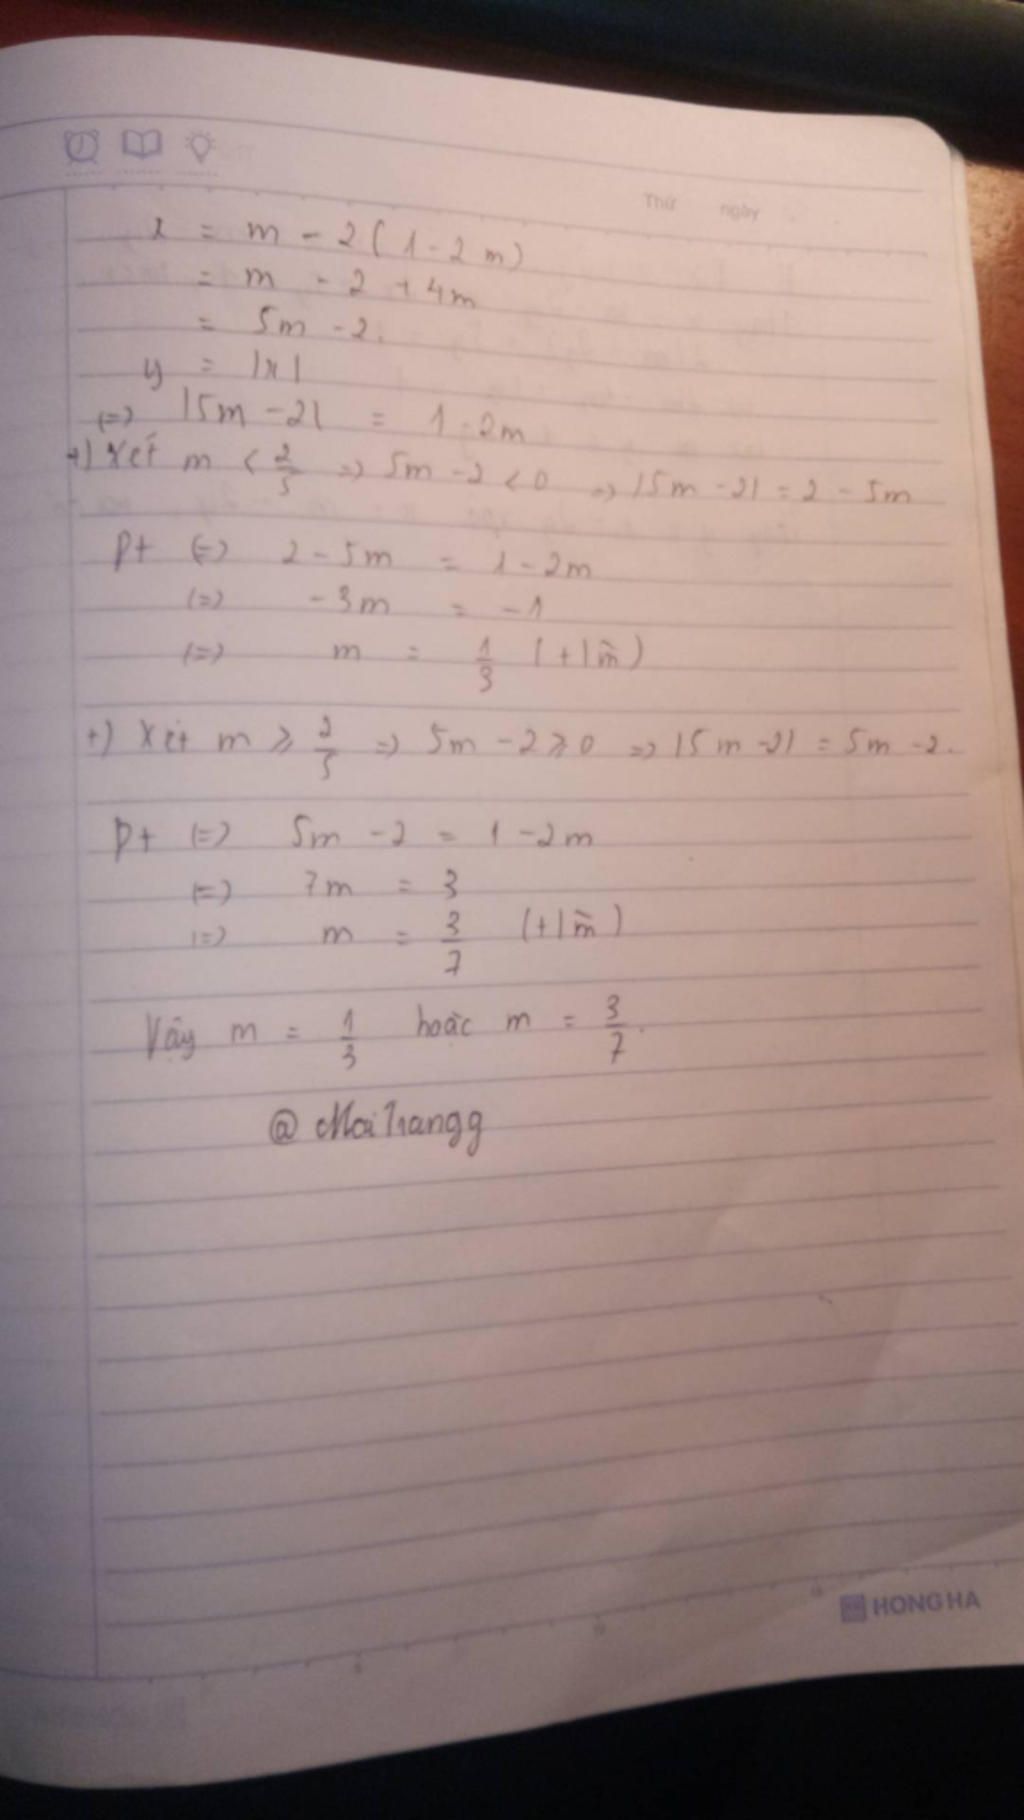 Thứ ngày
x = m - 2(1 - 2m)
= m - 2 + 4m
= 5m - 2.
y = |x|
(=) |5m - 2| = 1 - 2m
+) Xét m < 2/5 => 5m - 2 < 0 => |5m - 2| = 2 - 5m
Pt (=) 2 - 5m = 1 - 2m
(=) - 3m = - 1
(=) m = 1/3 (t/m)
+) Xét m ⩾ 2/5 => 5m - 2 ⩾ 0 => |5m - 2| = 5m - 2.
Pt (=) 5m - 2 = 1 - 2m
(=) 7m = 3
(=) m = 3/7 (t/m)
Vậy m = 1/3 hoặc m = 3/7.
@ MaiTrangg
HONG HA